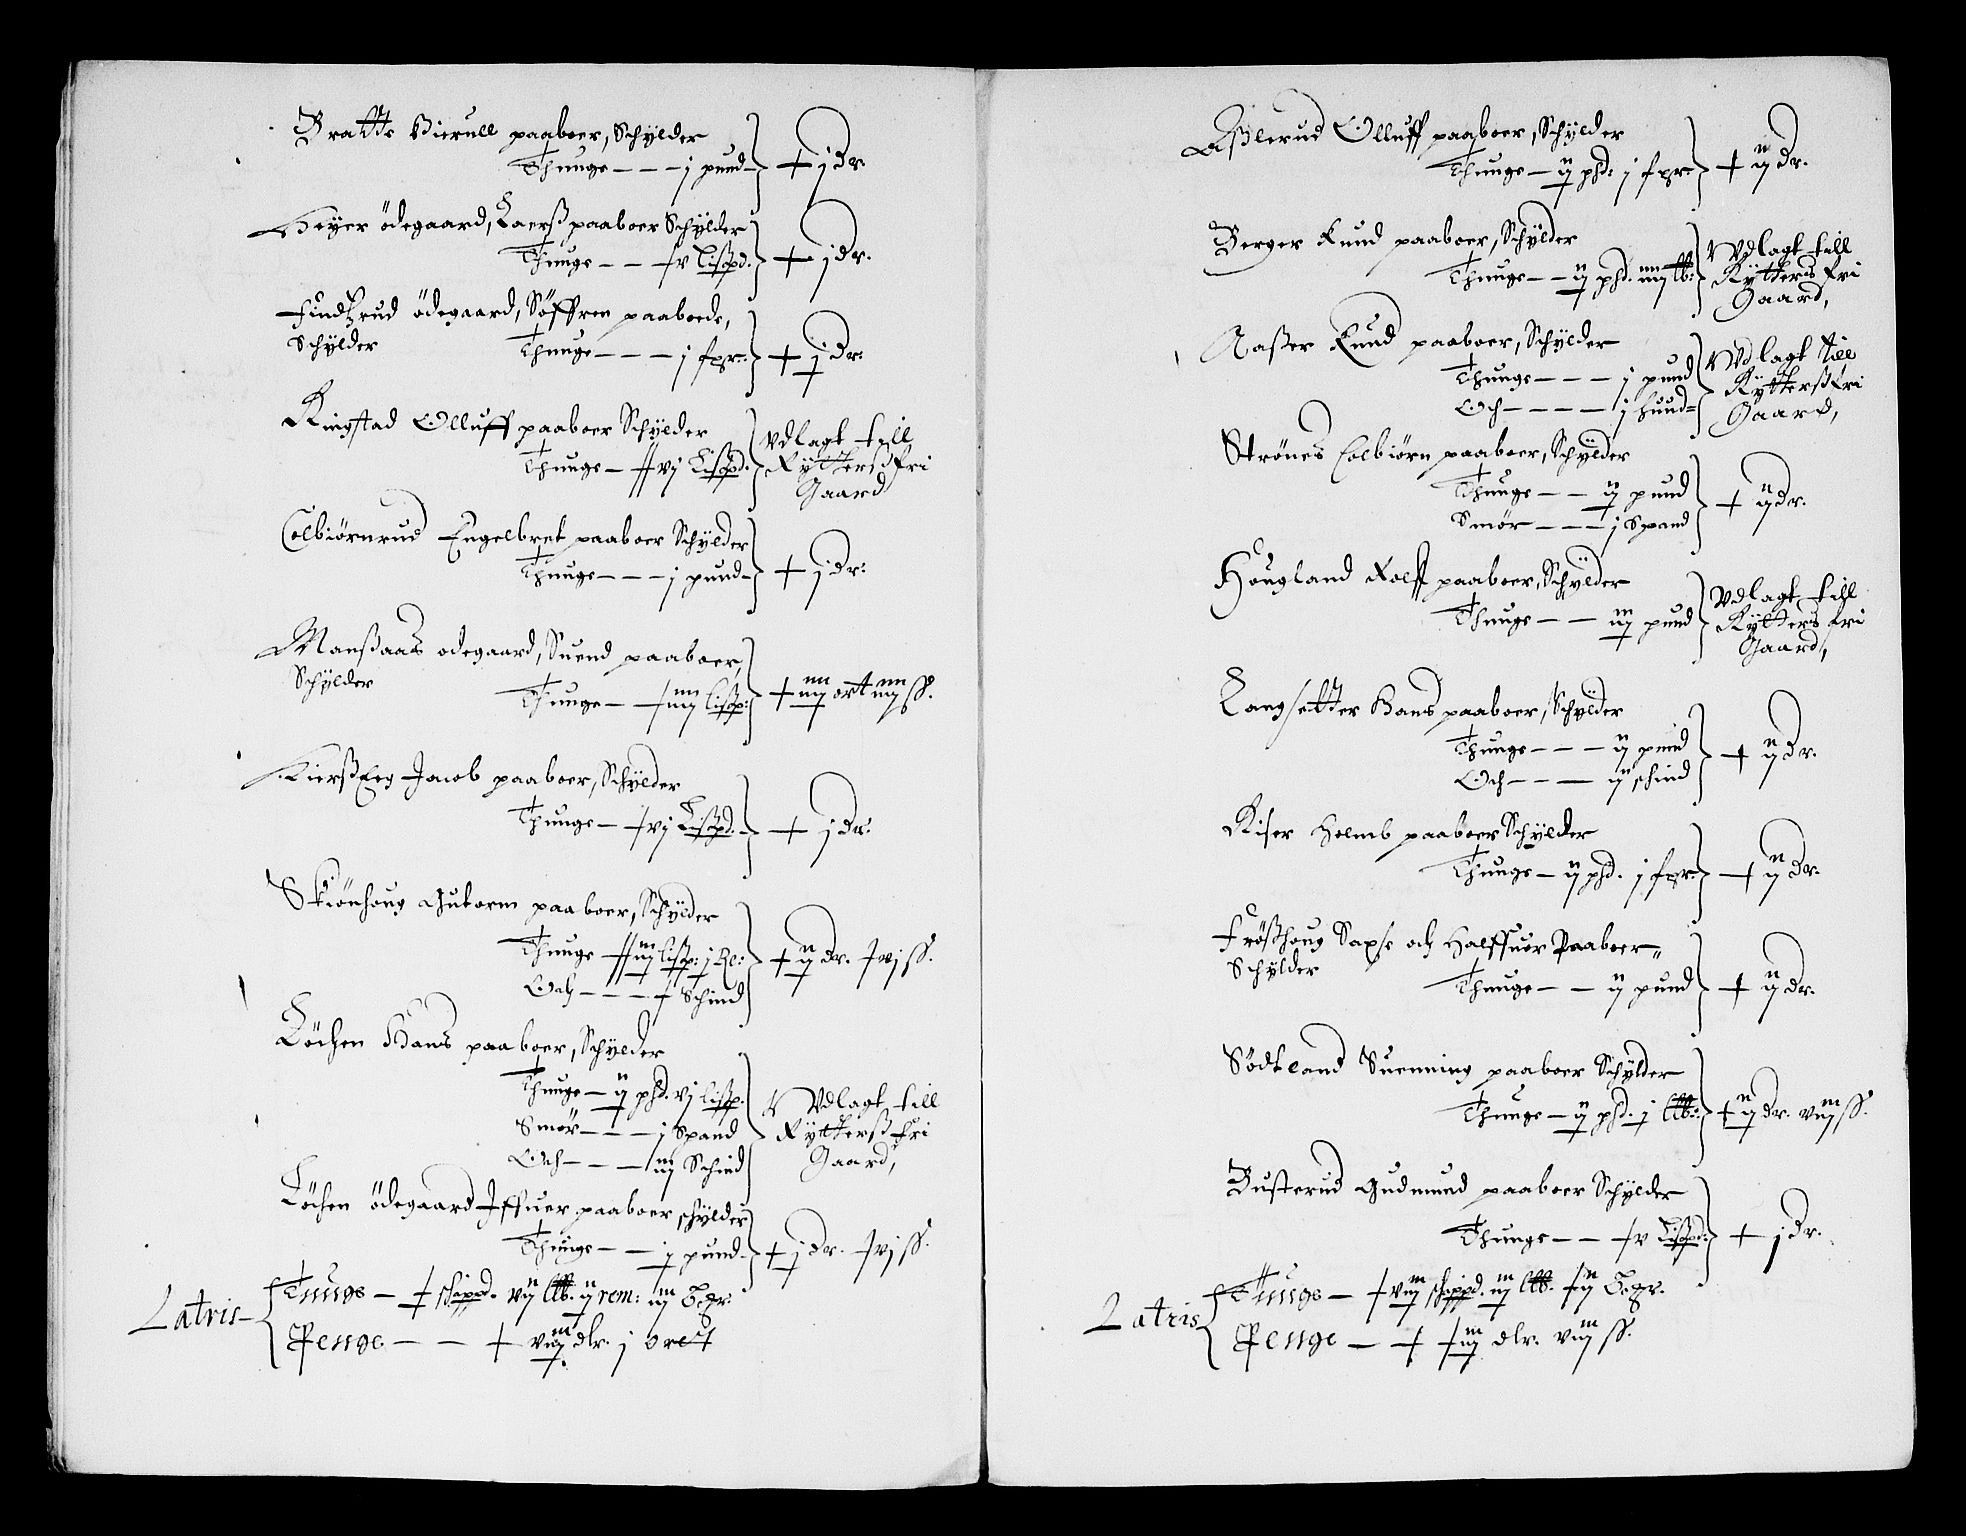 Bratte Bierull paaboer, Schylder
Thunge - - - j pund - + j dr
Heyer ödegaard, Laerß paaboer Schylder
Thunge - - v Lißpd. + j dr.
Findtzrud ödegaard, Söffren paaboede,
Schylder Thunge - - - j fgr: + j dr:
Ringstad Olluff paaboer Schylder
Thunge - vj Lißpd. Vdlagt till
Rytterß fri
Gaard
Colbiörnrud Engelbret paaboer Schylder
Thunge - - - j pund - + j dr:
Manßaas ödegaard, Suend paaboer,
Schylder
Thunge - iiij lißp: + iij ort iiij ß.
Kierß Eeg Jacob paaboer, Schylder
Thunge - vj Lißpd. - + j dr.
Skiönhoug Gutorm paaboer, Schylder
Thunge - iij lißp: j Re: + ij dr. vj ß.
Och - - - Schind
Löchen Hans paaboer, Schylder
Thunge - ij phd. vj lißp.
Smör - - - j Spand
Och - - - iij Schind
Vdlagt till
Rytterß fri
Gaard,
Löchen ödegaard Iffuer paaboer schylder
Thunge - - j pund - + j dr. vj ß.
Latris -
Tunge - schippd. vij Lb. ij rem: iij Begr.
Penge - - + viij dlr. j ort
Aßlerud Olluff paaboer, Schylder
Thunge - ij phd: j fgr: + ij dr.
Berger Knud paaboer, Schylder
Thunge - - ij phd. iiij Lb: Vdlagt till
Rytterß fri
Gaard,
Aaßer Knud paaboer, Schylder
Thunge - - - j pund
Och - - - - j huud =
Vdlagt till
Rytterß fri
Gaard,
Strönes Colbiörn paaboer, Schylder
Thunge - - ij pund
Smör - - - j Spand
+ ij dr.
Hougland Rolff paaboer, Schylder
Thunge - - iij pund
Vdlagt till
Rytterß fri
Gaard,
Langsetter Hans paaboer, Schylder
Thunge - - - ij pund
Och - - - ij schind
+ ij dr.
Riser Holmb paaboer Schylder
Thunge - ij phd. j fgr: + ij dr.
Frößhoug Saxse och Halffuor Paaboer
Schylder
Thunge - - ij pund + ij dr.
Södtland Suenning paaboer Schylder
Thunge - ij phd. j Lb: + ij dr. viij ß.
Busterud Gudmund paaboer Schylder
Thunge - - v Lißpd: + j dr.
Latris
Tunge - viij schippd. iij Lb. Begr.
Penge - + iij dlr. viij ß.